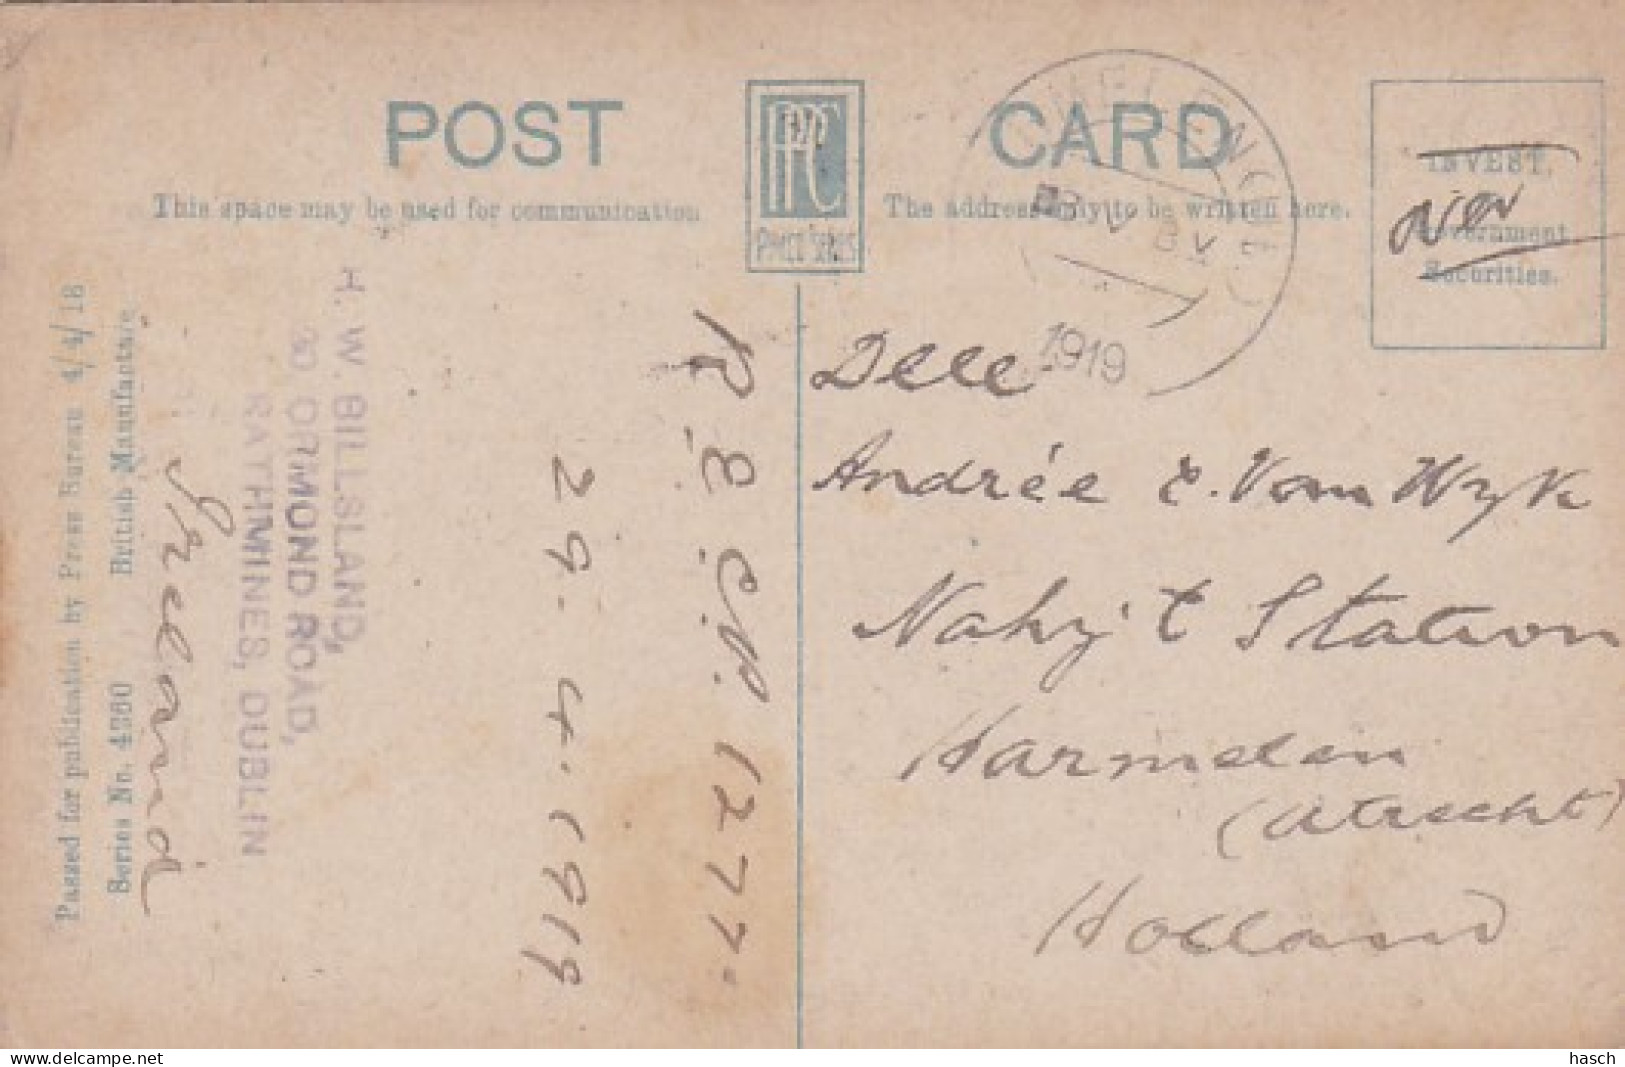 POST CARD
This space may be used for communication
The address only to be written here.
PPC
INVEST.
Government
Securities.
1919
Passed for publication by Press Bureau 4/4/18
Series No. 4360 British Manufacture
Ireland
H. W. BILLSLAND,
30 ORMOND ROAD,
RATHMINES, DUBLIN
29. 4. 1919
12777
Delle
Andrée E. Van Wyk
Station
Harmelen
(Utrecht)
Holland
hasch